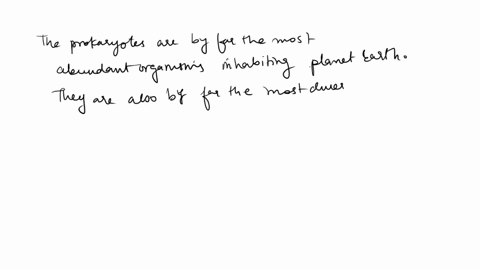 The prokaryotes are by far the most
abundant organisms inhabiting planet Earth.
They are also by far the most diver